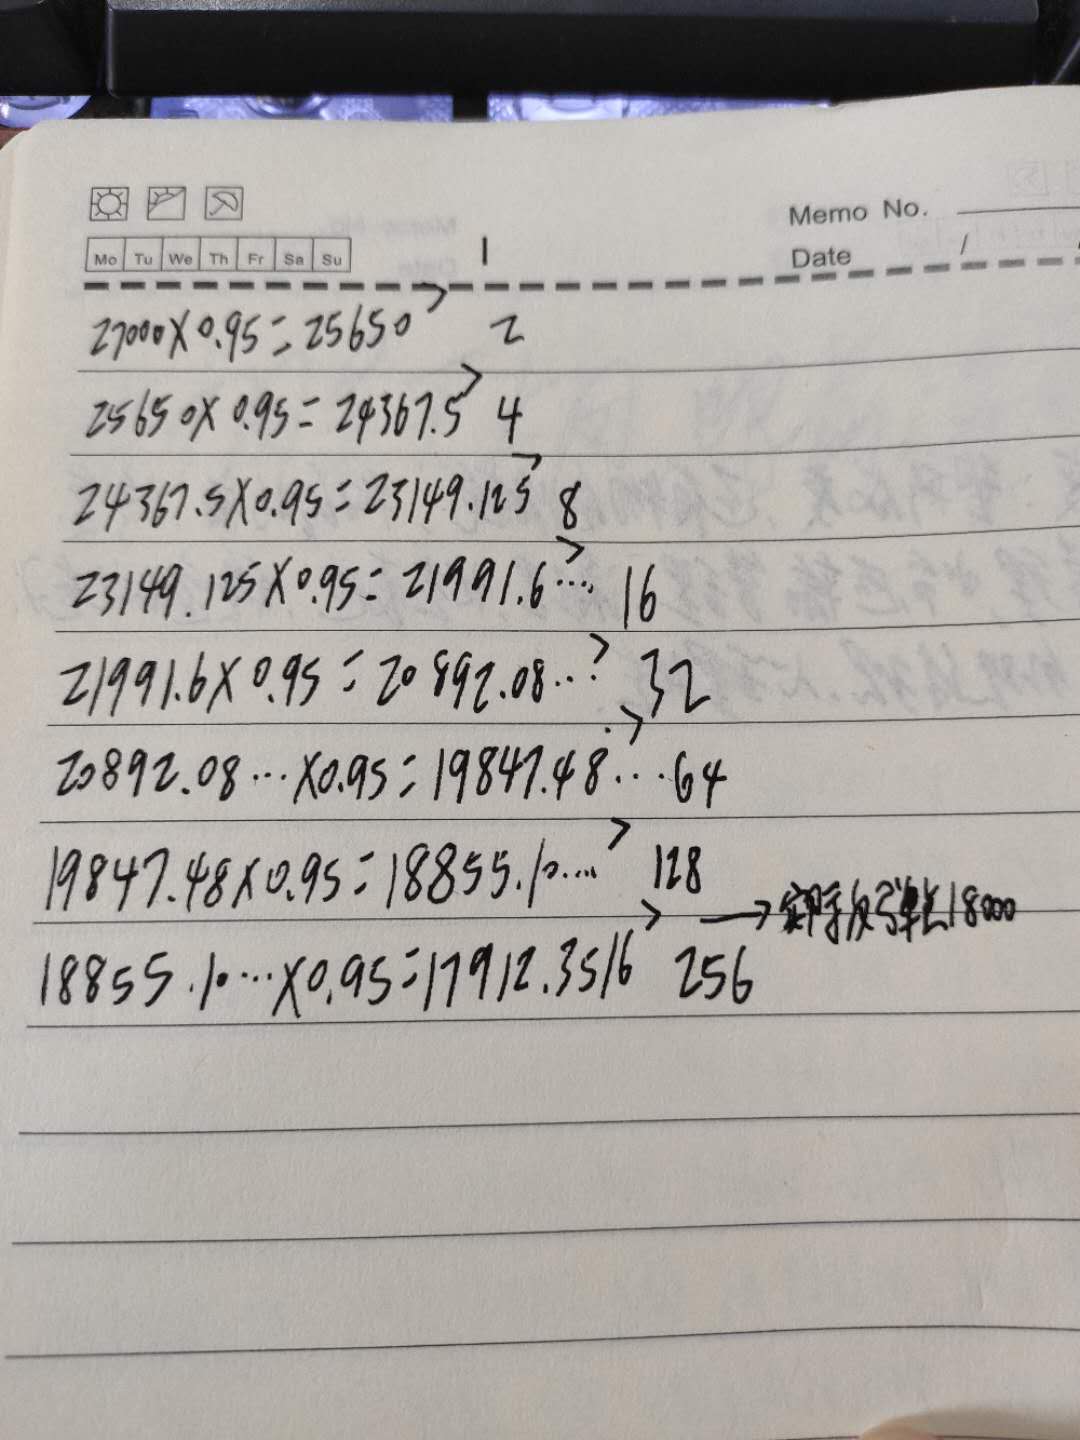 Memo No.
Mo Tu We Th Fr Sa Su 1 Date /
27000×0.95=25650 2
25650×0.95=24367.5 4
24367.5×0.95=23149.125 8
23149.125×0.95=21991.6… 16
21991.6×0.95=20892.08… 32
20892.08…×0.95=19847.48… 64
19847.48×0.95=18855.10… 128
→反弹18000
18855.10…×0.95=17912.3516 256